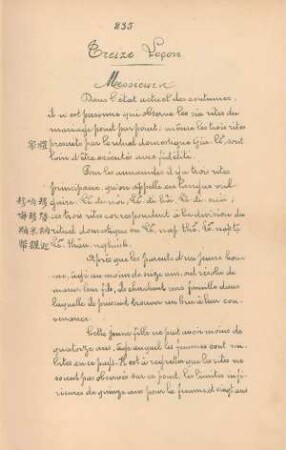 235
Treize Leçon
Messieurs
Dans l'état actuel des coutumes,
il n'est personne qui observe les six rites du
mariage point par point; même les trois rites
prescrits par le rituel domestique Gia lễ, sont
loin d'être exécutés avec fidélité.
家禮
Pour les annamites il y a trois rites
principaux, qu'on appelle en langue vul-
gaire: Lễ đi nói, Lễ đi hỏi, Lễ đi cưới,
ces trois rites correspondent à la division du
rituel domestique en Lễ nạp thể, Lễ nạp tệ
Lễ thân nghinh.
納采 納幣 親迎
Après que les parents d'un jeune hom-
me, âgé au moins de seize ans, ont résolu de
marier leur fils, ils cherchent une famille dans
laquelle ils puissent trouver un bru à leur con-
venance.
Cette jeune fille ne peut avoir moins de
quatorze ans, âge auquel les femmes sont nu-
biles en ce pays. Il est à regretter que les rites ne
soient pas observés sur ce point, les limites infé-
rieures de quinze ans pour la femme et vingt ans